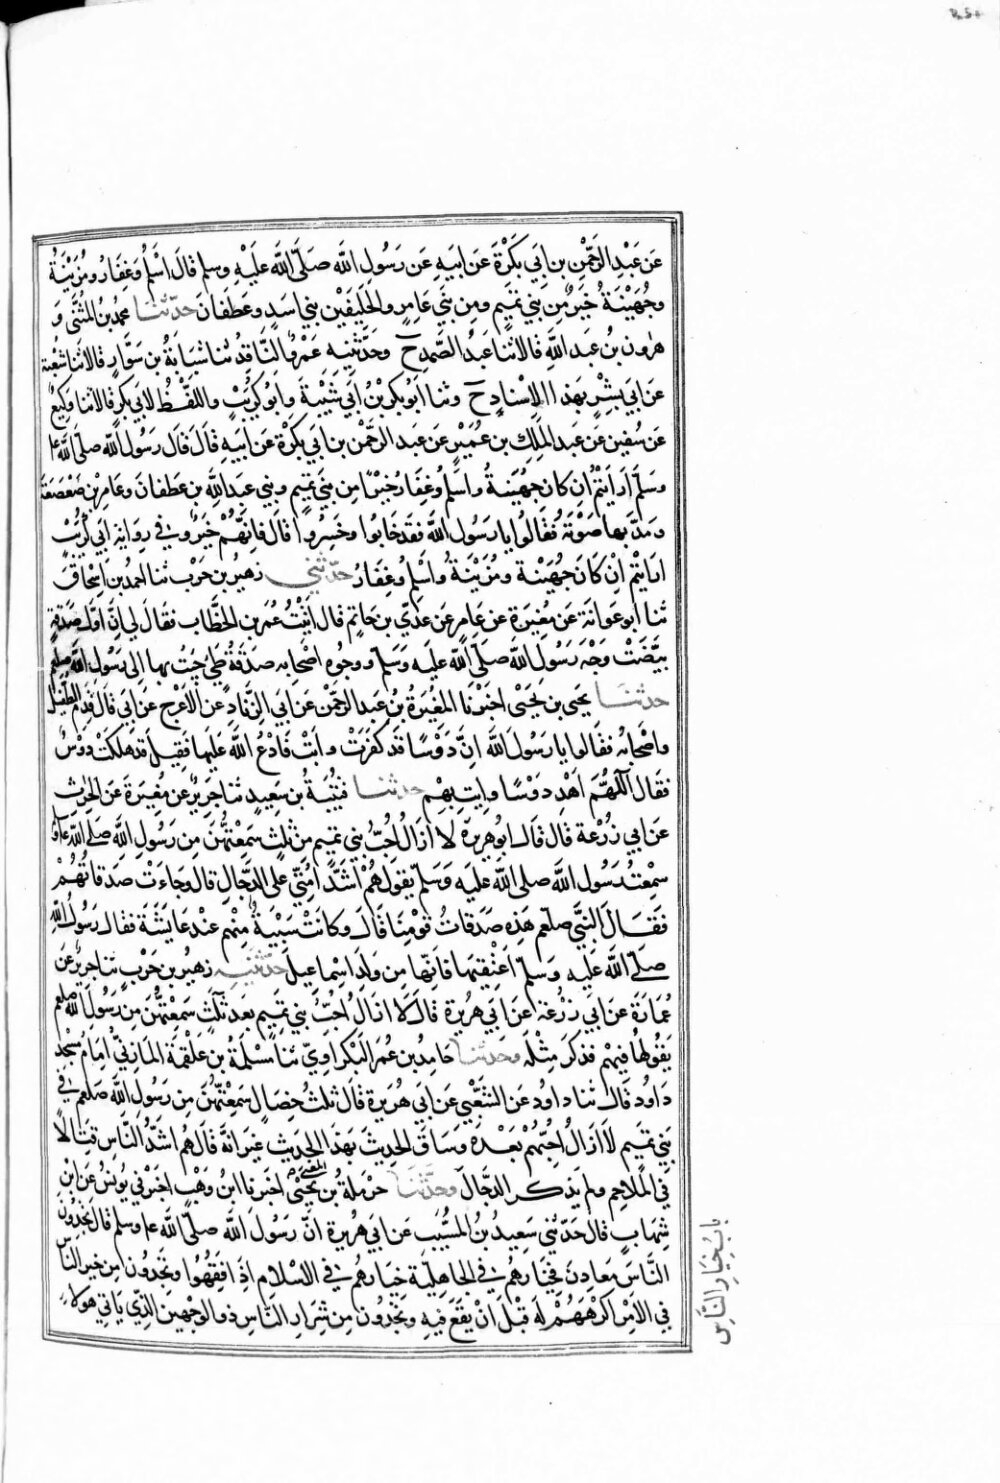 عَن عَبْدِ الرَّحْمٰنِ بن اَبِي بَكَرَةَ عَن اَبيهِ عَن رَسُولِ اللّٰه صَلَّى اللّٰه عَلَيْهِ وسلم قالَ اَسْلَمُ وَغِفَارُ ومُزَيْنَةُ
وجُهَيْنَةُ خَيرٌ مِن بَنِي تَمِيمٍ ومِن بَنِي عَامِرٍ والحَلِيفَيْنِ بَنِي اسَدٍ وغطفانَ حدّثنا محمدُ بنُ المُثَنَّى وَ
هٰرون بن عبد اللّٰه قالا ثنا عَبدُ الصَّمدِ ح وحدَّثنيه عَمْرٌو النَّاقِدُ ثنا شَبَابَةُ بن سَوَّارٍ قالا ثنا شعبة
عَن اَبي بِشْرٍ بهذا الاِسْنادِ ح وثنا ابو بكر بْنُ اَبي شَيْبَةَ وابو كُرَيْبٍ واللفْظُ لابي بكرٍ قالا ثنا وَكيعٌ
عَن سُفين عَن عبد المَلِكِ بن عُمَيْرٍ عَن عبد الرحمٰن بن ابي بكْرَة عَن ابيهِ قالَ قالَ رَسُول اللّٰه صلى اللّٰه عليه
وَسلّمَ اَرَايْتُمْ اِن كانَ جُهَيْنَةُ واَسْلمُ وغِفارُ خَيْرًا مِن بَنِي تميمٍ وبني عبد اللّٰه بن غطفان وعامِر بن صَعْصَعَة
ومَدَّ بها صَوْتَهُ فقالوا يا رَسُول اللّٰه فقد خابُوا وخَسِرُوا قال فاِنَّهُمْ خَيْرٌ وفي رِوايةِ اَبي كُرَيْبٍ
ارايتم اِنْ كانَ جُهَيْنة ومُزَيْنَةُ واَسْلَمُ وغِفَارُ حدّثني زهير بن حَرْب ثنا احمد بن اِسْحٰاقَ
ثنا ابو عَوانةَ عَن مُغِيرَةَ عَن عامِرٍ عَن عَدِيّ بن حاتِمٍ قال اَتَيْتُ عُمَر بن الخطّاب فقال لِي اِنَّ اَوَّلَ صَدَقَةٍ
بيَّضَتْ وَجْهَ رَسُول اللّٰه صَلّى اللّٰه عَليه وسَلّم ووجوهَ اَصْحابهِ صَدَقَةُ طَيّءٍ جئتَ بها اِلى رَسُول اللّٰه صلعم
حدثنا يحيى بن يَحْيىٰ اخبَرَنا المُغِيرَةُ بنُ عَبد الرحمٰن عَن ابي الزّنادِ عَن الاَعْرج عَن اَبي قال قدم الطفيل
واصْحابُه فقالوا يا رَسُولَ اللّٰه اِنَّ دَوْسًا قد كَفَرَتْ واَبَتْ فَادْعُ اللّٰه عَلَيها فقيلَ قد هَلَكَتْ دوْسٌ
فقال اَللّٰهُمَّ اهْدِ دوْسًا وايتِ بِهِمْ حدثنا قُتَيْبَةُ بن سَعِيدٍ ثنا جَرِيرٌ عن مغيرَة عَن الحٰرِثِ
عَن ابي زُرْعة قال قالَ ابو هريرة لا ازَالُ اُحِبُّ بَنِي تميم مِن ثلٰثٍ سَمعْتُهُنَّ مِن رَسُولِ اللّٰه صلى اللّٰه عليه
سمِعْتُ رَسُول اللّٰه صلى اللّٰه عليه وَسَلّم يقول هُمْ اَشَدُّ اُمَّتِي على الدجّالِ قال وجَاءَت صَدقاتُهُمْ
فَقَالَ النَّبِيّ صلعم هٰذِه صَدَقاتُ قوْمِنَا قالَ وكانَتْ سَبِيّةٌ مِنْهم عند عَايشَة فقال رَسُول اللّٰه
صَلّى اللّٰه عَليه وَسلم اَعْتِقِيها فاِنّها مِن وَلَدِ اِسْماعيلَ وحدّثنيه زهيرُ بن حَرْبٍ ثنا جرير عَن
عُمَارَةَ عَن ابي زُرْعَة عَن ابي هريرة قالَ لا ازال اُحِبّ بني تميمٍ بعد ثَلٰثٍ سَمِعْتُهُنّ مِن رسُولِ اللّٰه صلعم
يَقُولُها فيهم فذكَرَ مِثْلَه وحدثنا حامِد بن عُمر البَكراوِيّ ثنا مَسْلمةُ بن عَلْقمَة المازنيّ اِمامُ مَسْجد
داود قالَ ثنا داود عَن الشَّعْبِي عَن ابي هريرة قال ثلٰثُ خِصَالٍ سَمِعْتُهُنَّ مِن رسُول اللّٰه صلعم في
بني تميم لا ازالُ اُحِبُّهُمْ بَعْدَه وَسَاقَ الحديثَ بهٰذا الحديث غيرَ انّهُ قالَ هُمْ اَشَدُّ النَّاسِ قِتالًا
في المَلاحِمِ ولم يذكُرِ الدَّجّالَ وحدّثنا حَرْملةُ بن يَحْيىٰ اخبرنا ابنُ وَهْبٍ اخبَرني يونُسُ عَن ابن
شِهابٍ قال حَدّثني سَعيد بنُ المُسيّبِ عَن ابي هريرة انّ رَسول اللّٰه صلّى اللّٰه عليه وسلم قال تجدُونَ
النَّاسَ مَعادِنَ فخيارهم في الجاهليّة خيارُهم في الاسْلام اِذا فَقِهُوا وتَجدُونَ مِن خير النّاس
في الاَمْرِ اَكْرَهَهُمْ لَه قبْلَ انْ يَقَعَ فيه وتجدُونَ مِن شِرارِ النّاس ذو الوجهين الّذي يَاتي هولاءِ
بابُ خِيَارِ النَّاس